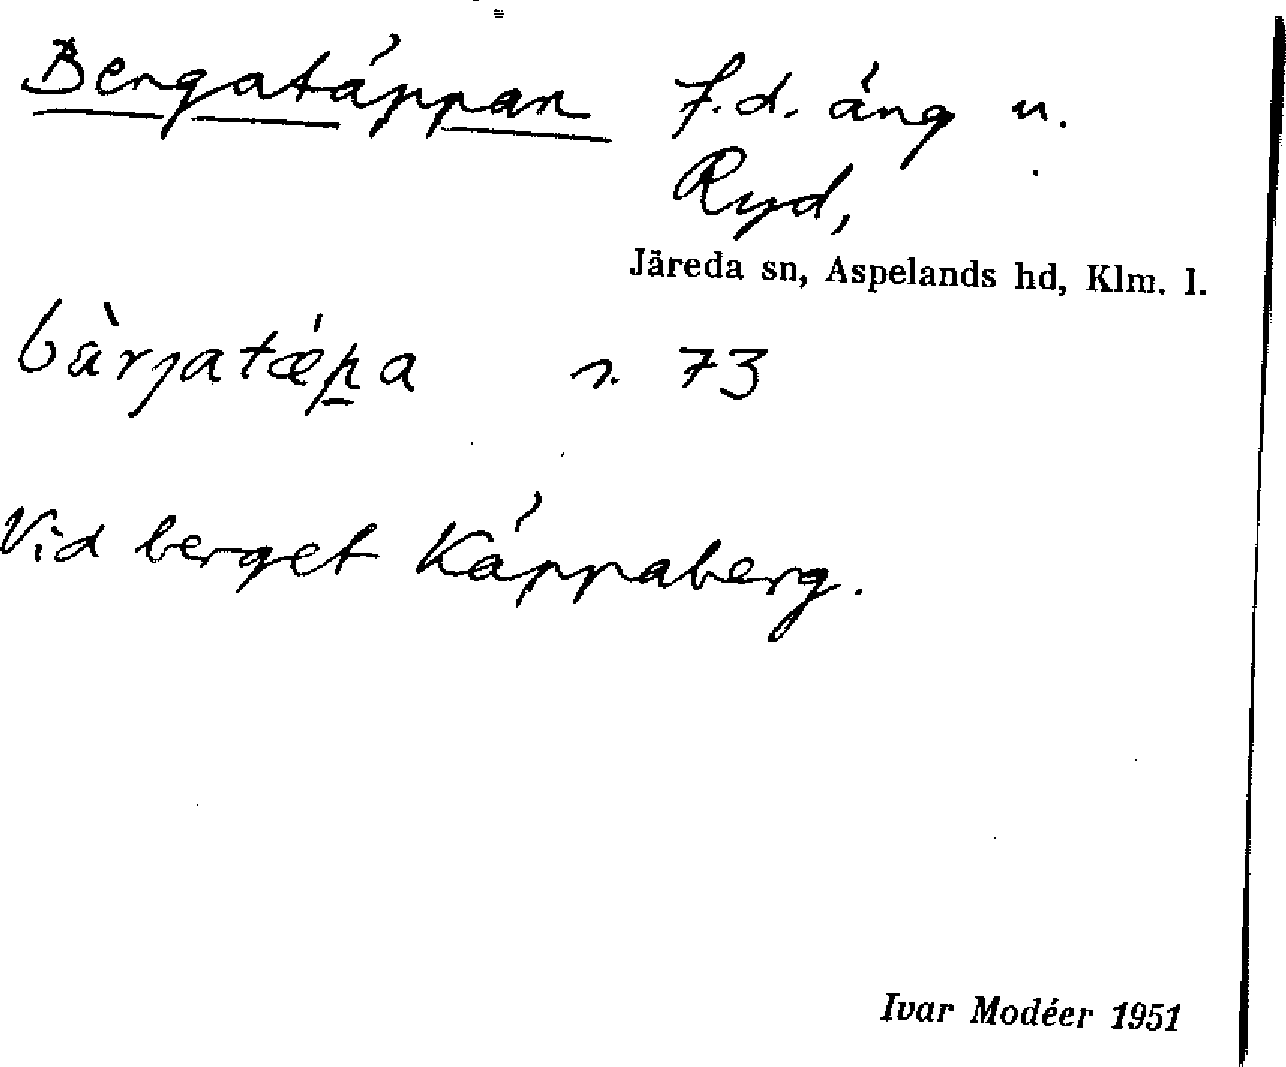 Bergatäppan f.d. äng u.
Ryd,
Järeda sn, Aspelands hd, Klm. l.
bàrjatǽp̲a s. 73
Vid berget Käppaberg.
Ivar Modéer 1951